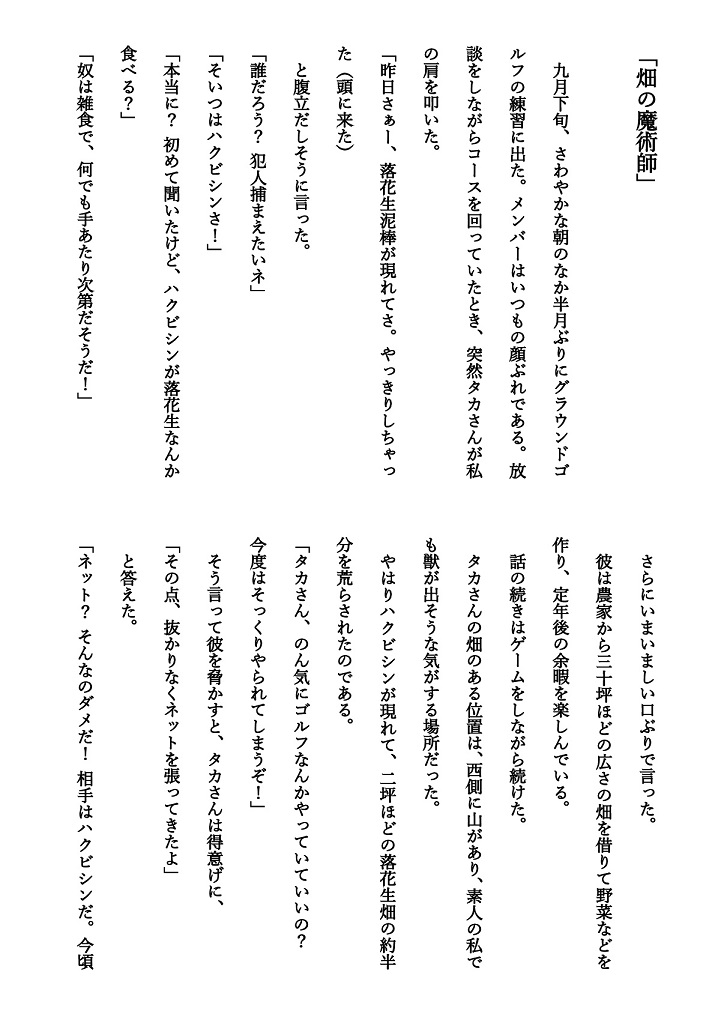 「畑の魔術師」
　九月下旬、さわやかな朝のなか半月ぶりにグラウンドゴ
ルフの練習に出た。メンバーはいつもの顔ぶれである。放
談をしながらコースを回っていたとき、突然タカさんが私
の肩を叩いた。
「昨日さぁー、落花生泥棒が現れてさ。やっきりしちゃっ
た（頭に来た）
　と腹立だしそうに言った。
「誰だろう？ 犯人捕まえたいネ」
「そいつはハクビシンさ！」
「本当に？ 初めて聞いたけど、ハクビシンが落花生なんか
食べる？」
「奴は雑食で、何でも手あたり次第だそうだ！」
　さらにいまいましい口ぶりで言った。
　彼は農家から三十坪ほどの広さの畑を借りて野菜などを
作り、定年後の余暇を楽しんでいる。
　話の続きはゲームをしながら続けた。
　タカさんの畑のある位置は、西側に山があり、素人の私で
も獣が出そうな気がする場所だった。
　やはりハクビシンが現れて、二坪ほどの落花生畑の約半
分を荒らされたのである。
「タカさん、のん気にゴルフなんかやっていていいの？
今度はそっくりやられてしまうぞ！」
　そう言って彼を脅かすと、タカさんは得意げに、
「その点、抜かりなくネットを張ってきたよ」
　と答えた。
「ネット？ そんなのダメだ！ 相手はハクビシンだ。今頃